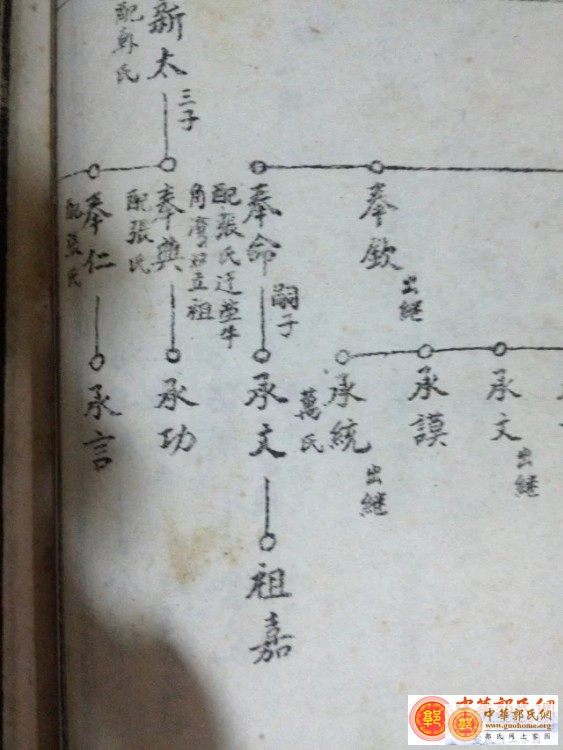 奉欽
出継
承文
出継
承謨
承統
萬氏
出継
奉命
配張氏迁塋牛
角湾立祖
嗣子
承文
祖嘉
新太
三子
奉典
配張氏
承功
奉仁
配張氏
承言
中華郭氏網
www.guohome.org
郭氏网上家园